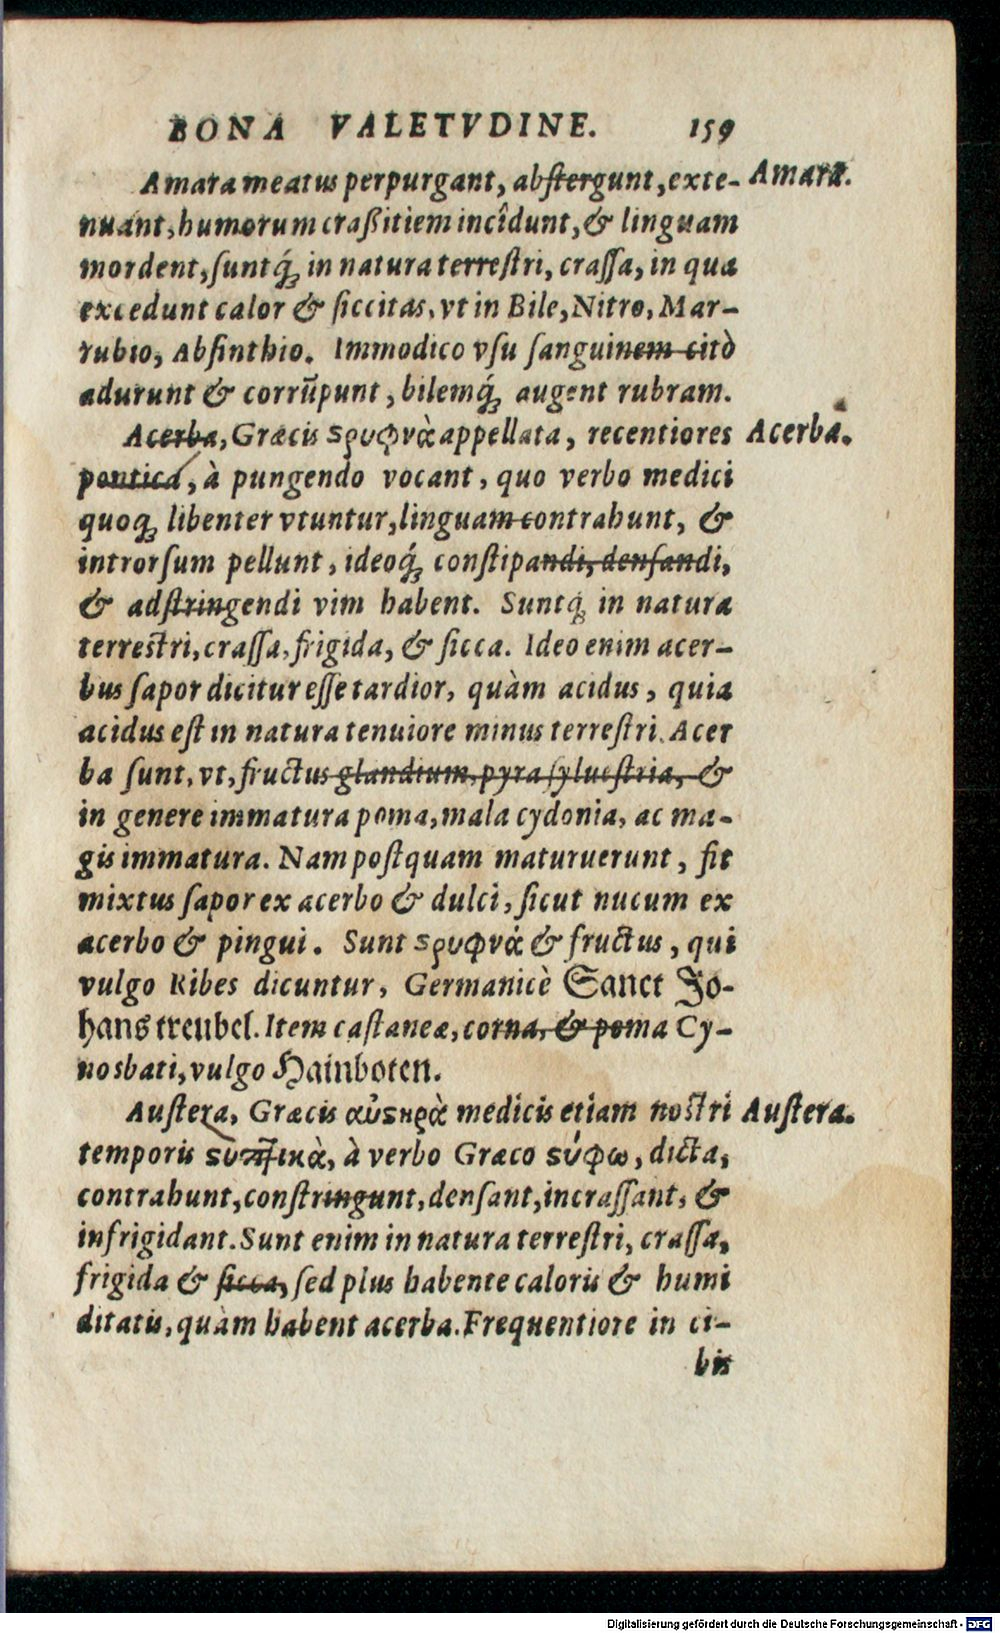 BONA VALETVDINE. 159
Amara meatus perpurgant, abſtergunt, exte- Amara.
nuant, humorum craßitiem incîdunt, & linguam
mordent, ſuntq́; in natura terreſtri, craſſa, in qua
excedunt calor & ſiccitas, vt in Bile, Nitro, Mar-
rubio, Abſinthio. Immodico vſu ſanguinem citò
adurunt & corrūpunt, bilemq́; augent rubram.
Acerba, Græcis ϛρυφνὰ appellata, recentiores Acerba.
pontica, à pungendo vocant, quo verbo medici
quoq; libenter vtuntur, linguam contrahunt, &
introrſum pellunt, ideoq́; conſtipandi, denſandi,
& adſtringendi vim habent. Suntq́; in natura
terreſtri, craſſa, frigida, & ſicca. Ideo enim acer-
bus ſapor dicitur eſſe tardior, quàm acidus, quia
acidus eſt in natura tenuiore minus terreſtri. Acer
ba ſunt, vt, fructus glandium, pyra ſylueſtria, &
in genere immatura poma, mala cydonia, ac ma-
gis immatura. Nam poſtquam maturuerunt, fit
mixtus ſapor ex acerbo & dulci, ſicut nucum ex
acerbo & pingui. Sunt ϛρυφνὰ & fructus, qui
vulgo Ribes dicuntur, Germanicè Sanct Jo-
hans treubel. Item caſtaneæ, corna, & poma Cy-
nosbati, vulgo Hainboten.
Auſtera, Græcis αὐϛηρὰ medicis etiam noſtri Auſtera.
temporis ϛυπτικὰ, à verbo Græco ϛύφω, dicta,
contrahunt, conſtringunt, denſant, incraſſant, &
infrigidant. Sunt enim in natura terreſtri, craſſa,
frigida & ſicca, ſed plus habente caloris & humi
ditatis, quàm habent acerba. Frequentiore in ci-
bis
Digitalisierung gefördert durch die Deutsche Forschungsgemeinschaft - DFG